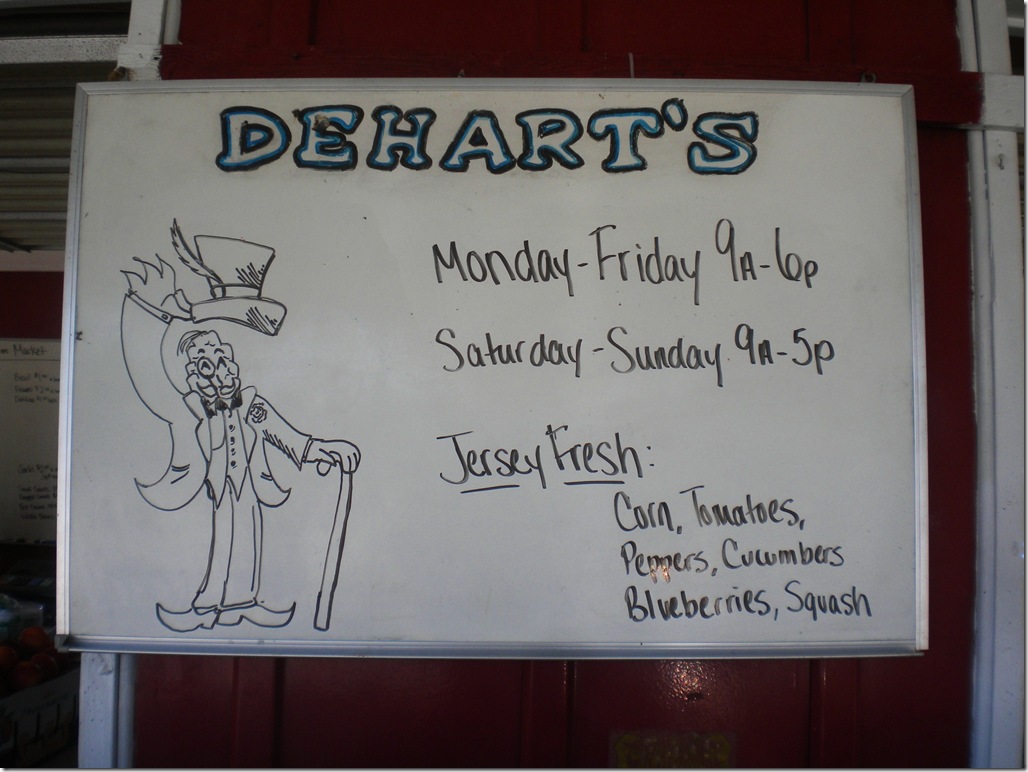 DEHART'S
Monday-Friday 9A-6p
Saturday-Sunday 9A-5p
Jersey Fresh:
Corn, Tomatoes,
Peppers, Cucumbers
Blueberries, Squash
Market